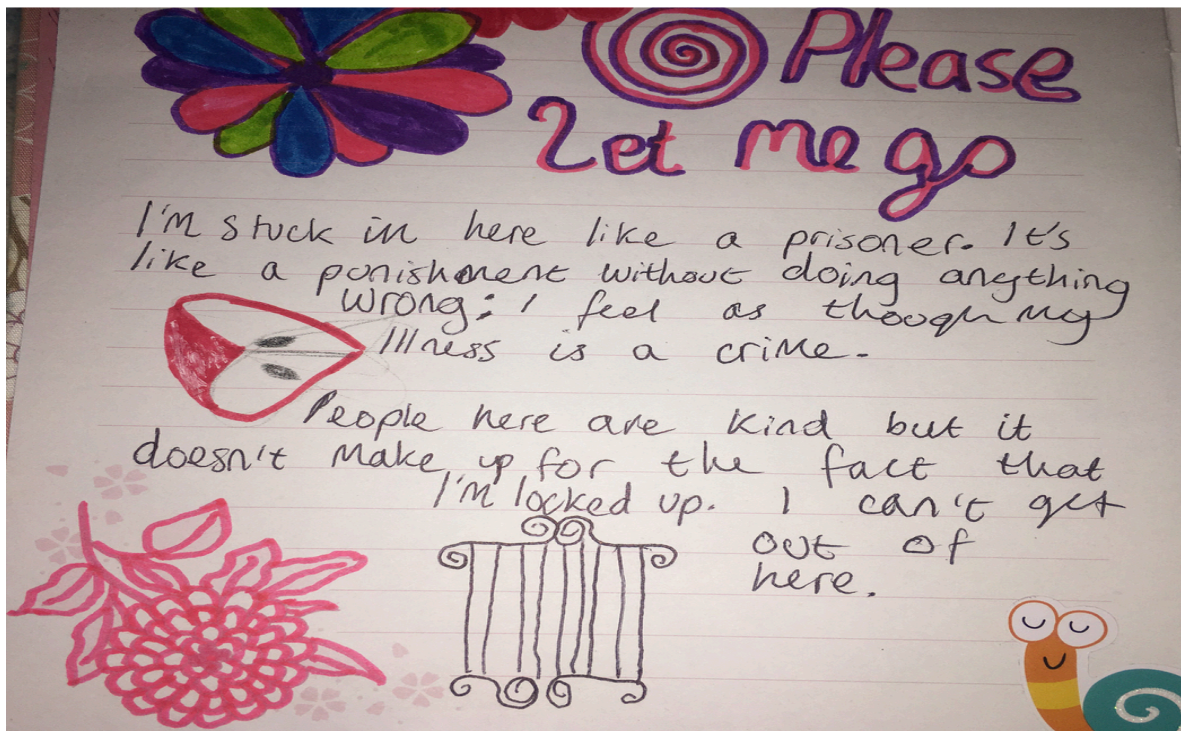 Please
Let me go
I'm stuck in here like a prisoner. It's
like a punishment without doing anything
wrong; I feel as though my
Illness is a crime.
People here are kind but it
doesn't make up for the fact that
I'm locked up. I can't get
out of
here.